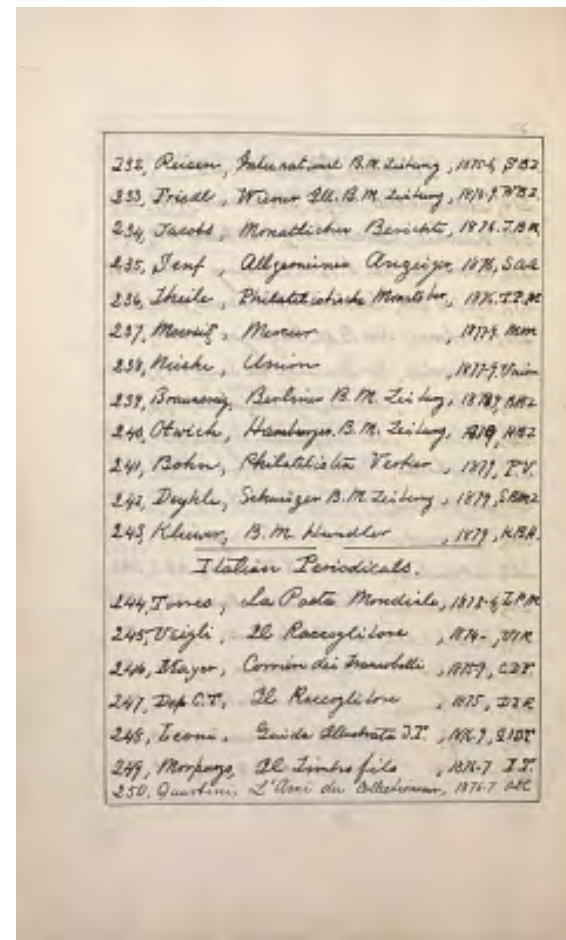 232, Reisen, International B.M. Zeitung, 1875-6,
233, Friedl, Wiener Ill. B.M. Zeitung, 1876-9. WBZ.
234, Jacobs, Monatlicher Berichte, 1876. J.B.M.
235, Senf, Allgemeiner Anzeiger, 1876, SAA
236, Theile, Philatelistische Monats, 1876,
237, Moeresig, Mercur, 1877-9. MM
238, Union, 1877-9, Union
239, Berliner B.M. Zeitung, BBZ
240, Otwich, Hamburger B.M. Zeitung, HBZ
241, Bohn, Philatelisten Verker, 1879, P.V.
242, B.M. Zeitung, 1879,
243, Kluwer, B.M. Handler, 1879, K.B.H.
Italian Periodicals.
244, Torres, La Posta Mondiale,
245, Usigli, Il Raccoglitore, 1874-, UIR
246, Mayer, Corriere dei Francobolli, 1875-9, C.D.F.
247, Dep C.T, Il Raccoglitore, 1875, DIR
248, Leoni, Guida Illustrata 1876-7,
249, Morpurgo, Il Timbrofilo, 1876-7 I.T.
250, L'Ami du Collectionneur, 1876-7 ADC